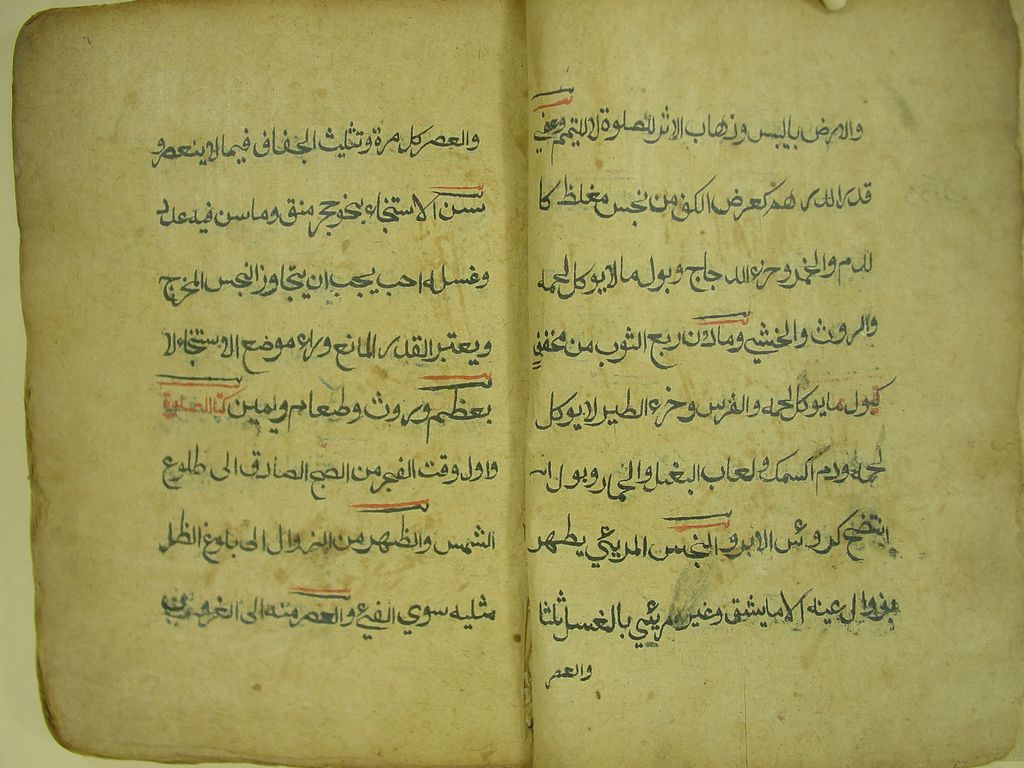 والارض باليبس وذهاب الاثر للصلوة لا للتيمم وعفي
قدر الدرهم كعرض الكف من نجس مغلظ كا
لدم والخمر وخرء الدجاج وبول ما لا يوكل لحمه
والروث والخشي وما دون ربع الثوب من مخففي
كبول ما يوكل لحمه والفرس وخرء الطير لا يوكل
لحمه ودم السمك ولعاب البغل والحمار وبول
انتضح كروئس الابر والنجس المريئي يطهر
بزوال عينه الا ما يشق وغير مريئي بالغسل ثلثا
والعصر
والعصر كل مرة وتثليث الجفاف فيما لا ينعصر و
سن الاستنجاء بنحو حجر منق وما سن فيه عدد
وغسله احب يجب ان يتجاوز النجس المخرج
ويعتبر القدر المانع وراء موضع الاستنجاء لا
بعظم وروث وطعام ويمين كتاب الصلوة
واول وقت الفجر من الصبح الصادق الى طلوع
الشمس والظهر من الزوال الى بلوغ الظل
مثليه سوي الفيئ والعصر منه الى الغروب